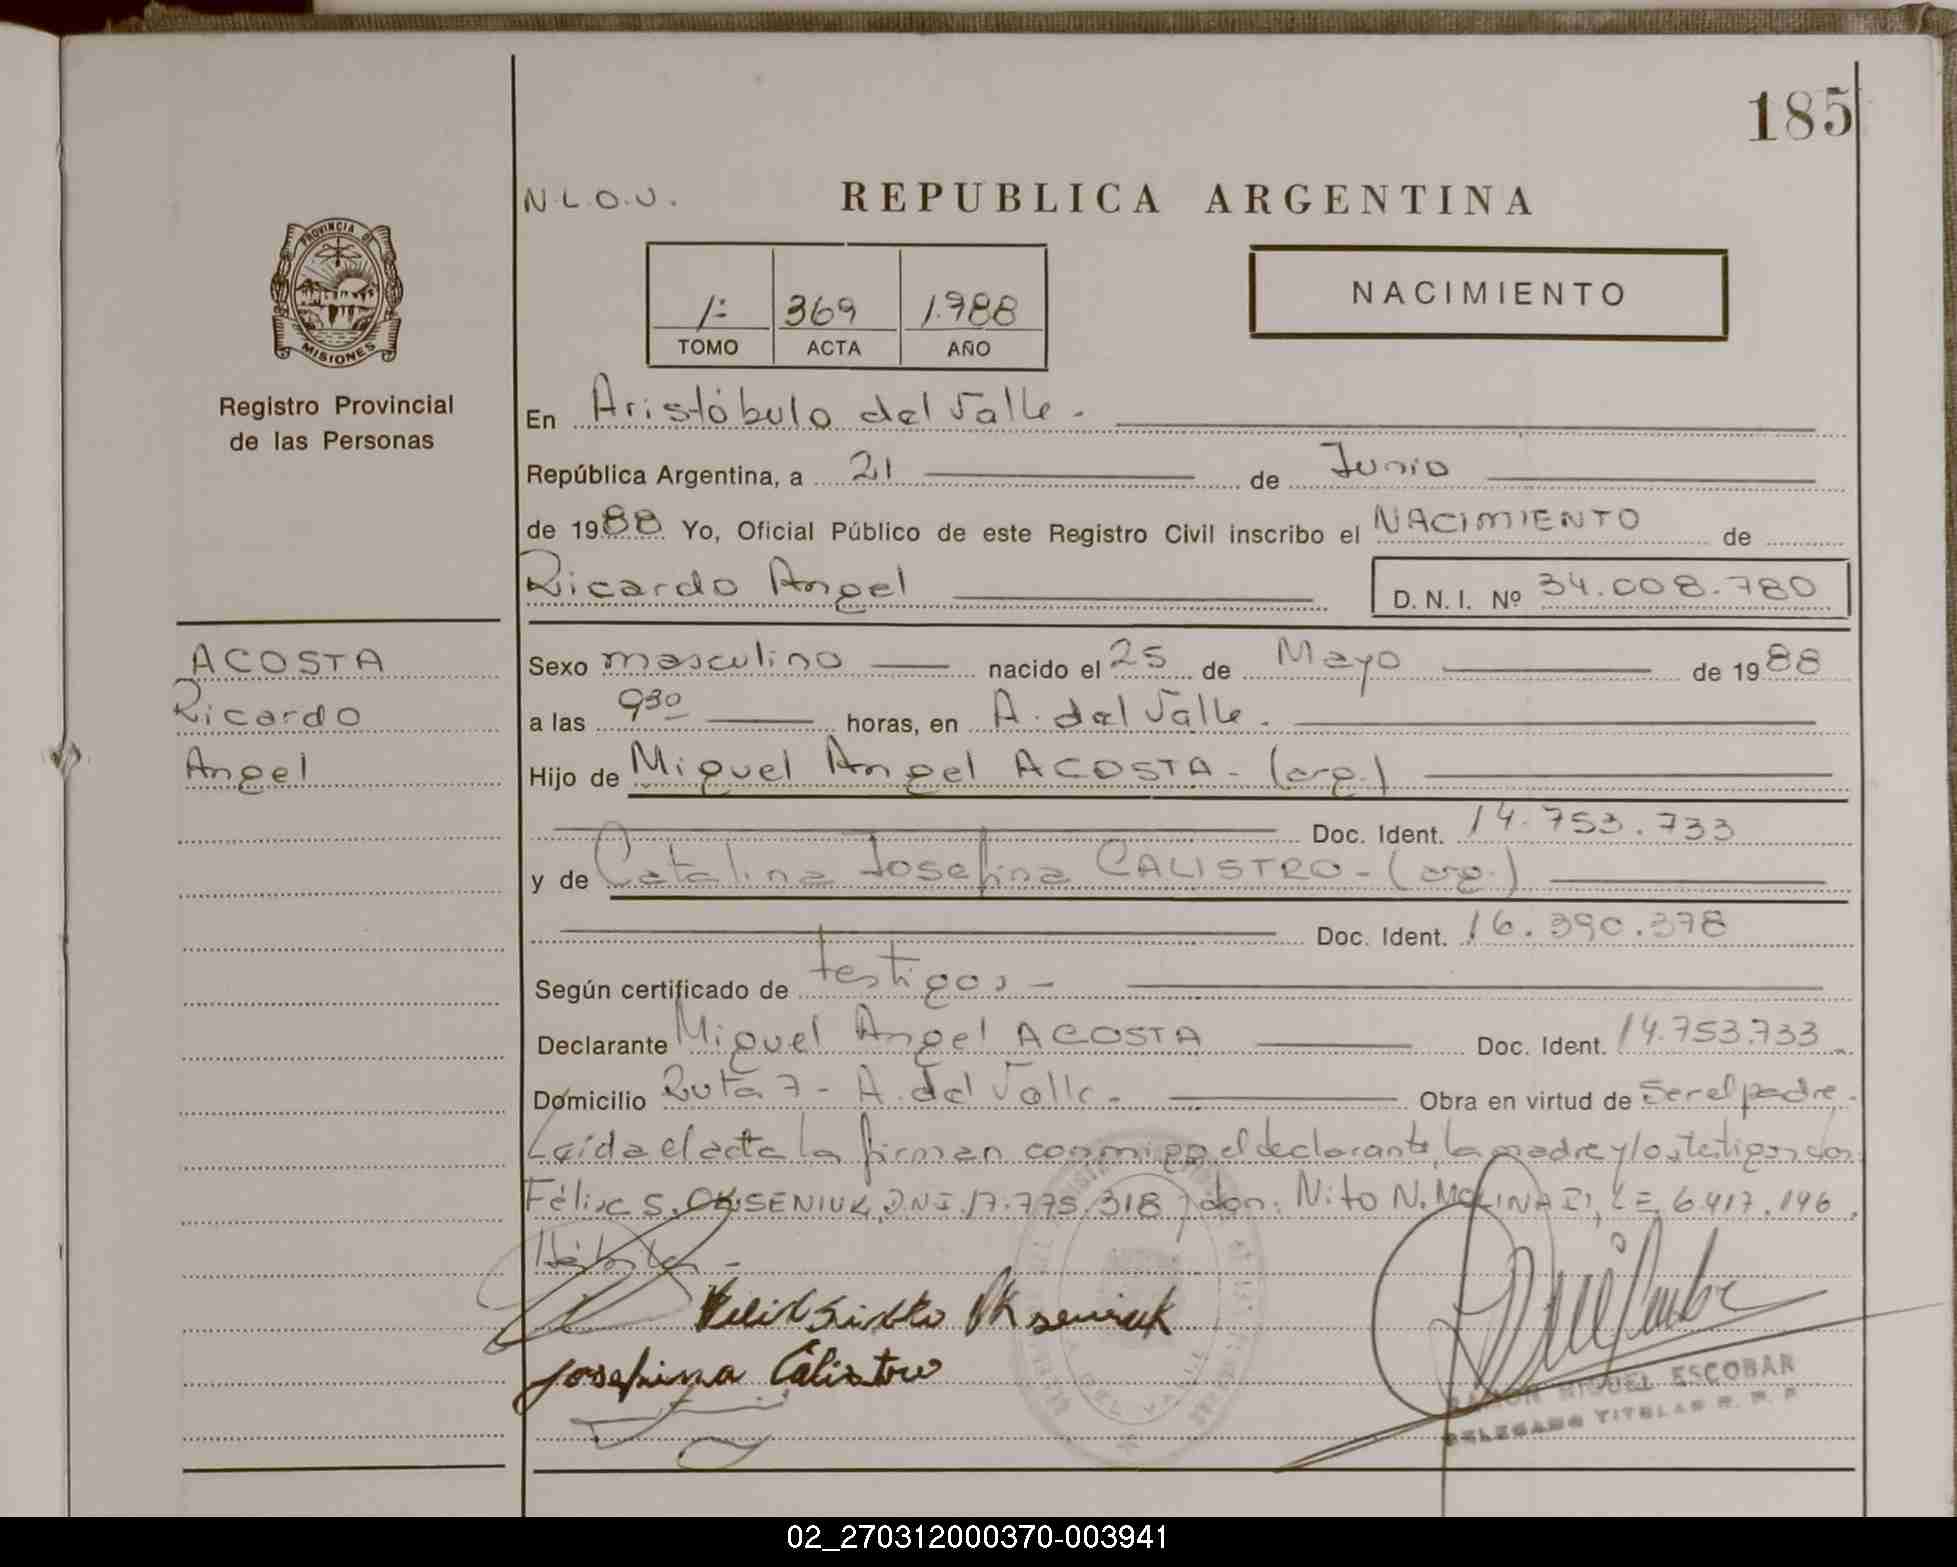 185
N.L.O.U.
REPUBLICA ARGENTINA
PROVINCIA DE
MISIONES
Registro Provincial
de las Personas
1:- 369 1.988
TOMO ACTA AÑO
NACIMIENTO
En Aristóbulo del Valle.
República Argentina, a 21 de Junio
de 1988 Yo, Oficial Público de este Registro Civil inscribo el NACIMIENTO de
Ricardo Angel D.N.I. Nº 34.008.780
ACOSTA
Ricardo
Angel
Sexo masculino nacido el 25 de Mayo de 1988
a las 9³⁰ horas, en A. del Valle.
Hijo de Miguel Angel ACOSTA - (arg.)
Doc. Ident. 14.753.733
y de Catalina Josefina CALISTRO - (arg.)
Doc. Ident. 16.390.378
Según certificado de testigos -
Declarante Miguel Angel ACOSTA Doc. Ident. 14.753.733
Domicilio Ruta 7 - A. del Valle - Obra en virtud de ser el padre.
Leída el acta la firman conmigo el declarante, la madre y los testigos don:
Félix S. OKSENIUK, D.N.I. 17.775.318 y don: Nito N. L.E. 6.417.196,
Hábiles -
Okseniuk
Josefina Calistro
RAMON MIGUEL ESCOBAR
DELEGADO TITULAR R. P. P.
02_270312000370-003941